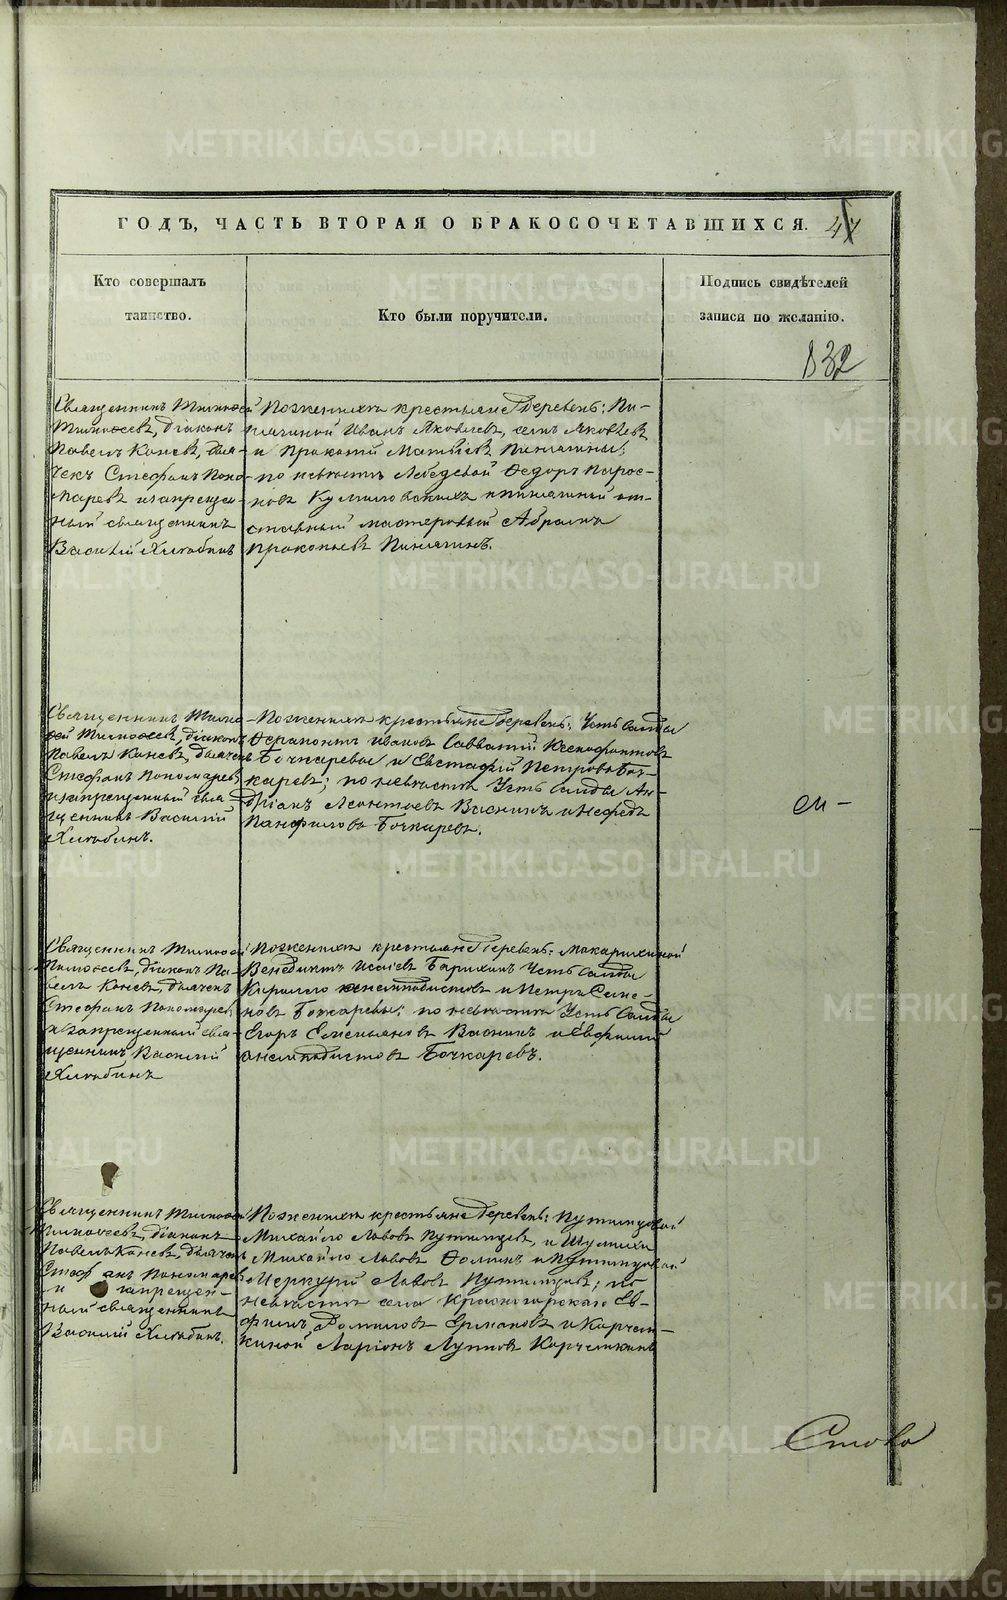 ГОДЪ, ЧАСТЬ ВТОРАЯ О БРАКОСОЧЕТАВШИХСЯ. 47
Кто совершалъ
таинство.
Кто были поручители.
Подпись свидѣтелей
записи по желанію.
832
Священникъ Тимоѳей
Тимоѳеевъ, діаконъ
Павелъ Каневъ, дья-
чекъ Стефанъ Поно-
маревъ и запрещен-
ный священникъ
Василій Хлѣбинъ
По женихѣ крестьяне деревень: Пи-
нягиной Иванъ Яковлевъ, Яковлевъ
и Прокопій Матвѣевъ Пинягины;
по невѣстѣ Лебедевой Ѳедоръ
новъ и Пинягиной от-
ставный мастеровый Абрамъ
Прокопьевъ Пинягинъ.
Священникъ Тимо-
ѳей Тимоѳеевъ, діаконъ
Павелъ Каневъ, дьячекъ
Стефанъ Пономаревъ
и запрещенный свя-
щенникъ Василій
Хлѣбинъ.
По женихѣ крестьяне деревень: Усть Салды
Ѳерапонтъ Ивановъ Савватій Ксенофонтовъ
Бочкаревы и Евстафій Петровъ Боч-
каревъ; по невѣстѣ Усть Салды Ан-
дріанъ Леонтьевъ Васнинъ и Неѳедъ
Панфиловъ Бочкаревъ.
ен-
Священникъ Тимоѳей
Тимоѳеевъ, діаконъ Па-
велъ Каневъ, дьячекъ
Стефанъ Пономаревъ
и запрещенный свя-
щенникъ Василій
Хлѣбинъ
По женихѣ крестьяне деревень: Макарихиной
Венедиктъ Исаевъ Барихинъ Усть Салды
Кирилло Анемподистовъ и Петръ Семе-
новъ Бочкаревы; по невѣстѣ Усть Салды
Егоръ Емельяновъ Васнинъ и Евфимій
Анемподистовъ Бочкаревъ.
Священникъ Тимоѳей
Тимоѳеевъ, діаконъ
Павелъ Каневъ, дьячекъ
Стефанъ Пономаревъ
и запрещен-
ный священникъ
Василій Хлѣбинъ.
По женихѣ крестьяне деревень: Путимцовой
Михайло Львовъ Путимцевъ, и Шумихи
Михайло Львовъ Ѳоминъ и Путимцовой
Меркурій Львовъ Путимцевъ; по
невѣстѣ села Красногорскаго Ев-
фимъ Ермаковъ и Корчем-
киной Ларіонъ Лупповъ Корчемкинъ
METRIKI.GASO-URAL.RU